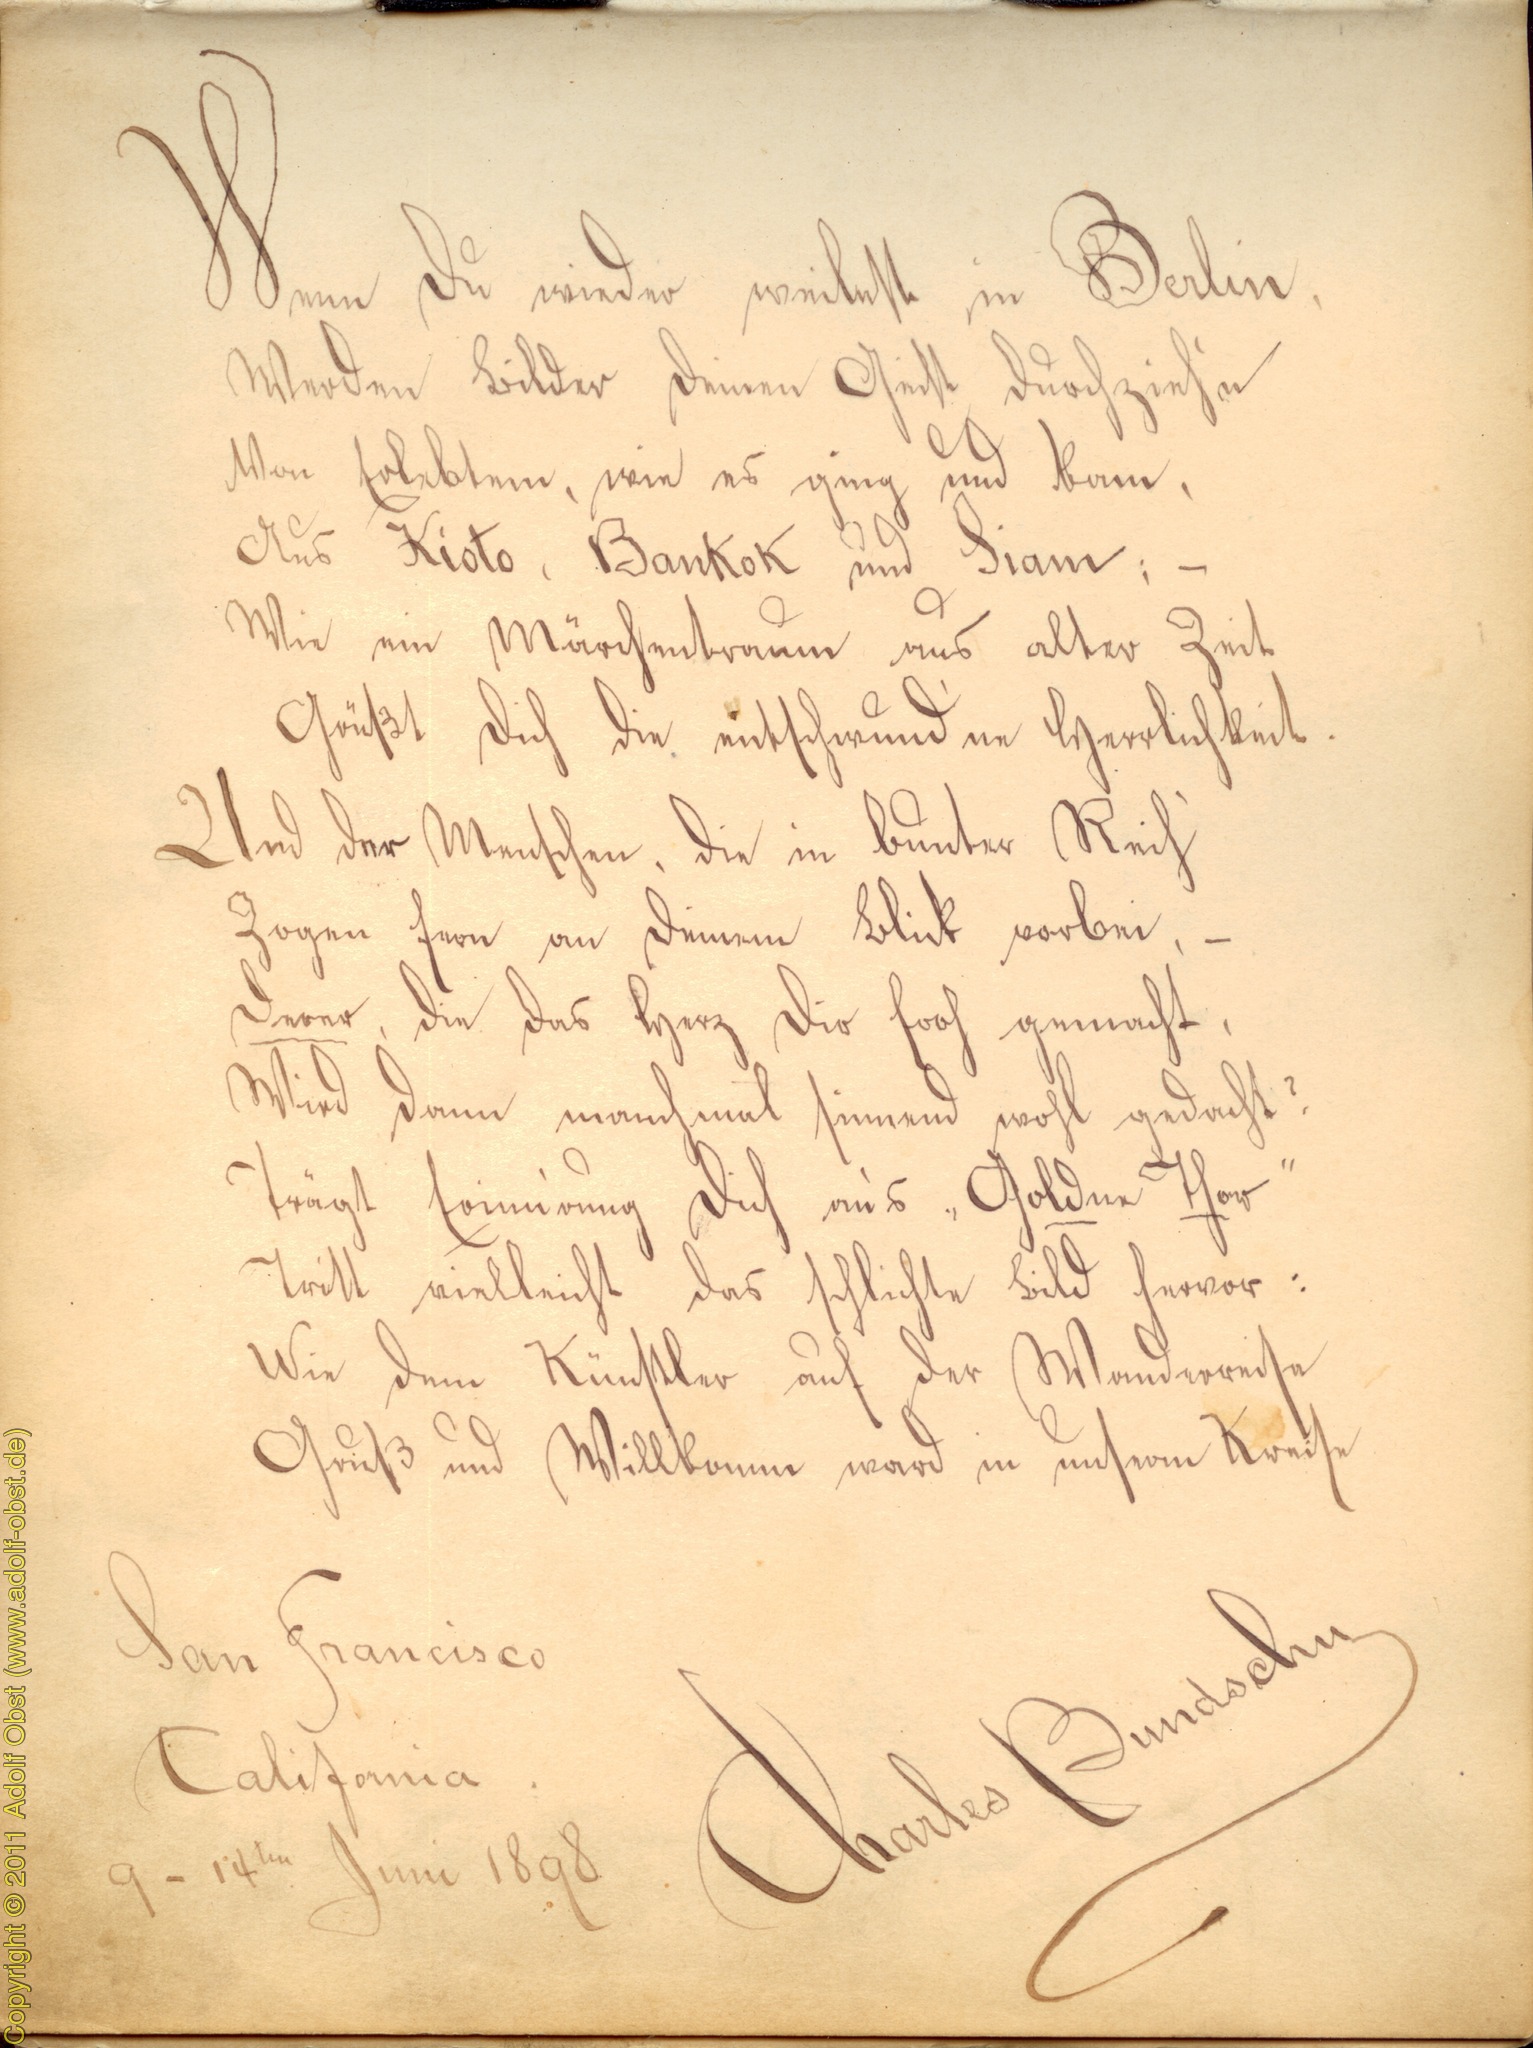 Wenn Du wieder weilest in Berlin,
Werden Bilder Deinen Geist durchzieh'n
Von Erlebtem, wie es ging und kam,
Aus Kioto, Bankok und Siam; –
Wie ein Märchentraum aus alter Zeit
Grüßt Dich die entschwund'ne Herrlichkeit.
Und der Menschen, die in bunter Reih'
Zogen fern an Deinem Blick vorbei, –
Derer, die das Herz Dir froh gemacht,
Wird dann manchmal sinnend wohl gedacht?
Trägt Erinn'rung Dich an's „Goldne Thor"
Tritt vielleicht das schlichte Bild hervor:
Wie dem Künstler auf der Wanderreise
Gruß und Willkomm ward in unserm Kreise
San Francisco
California.
9 – 14ten Juni 1898
Charles Bundschu
Copyright © 2011 Adolf Obst (www.adolf-obst.de)